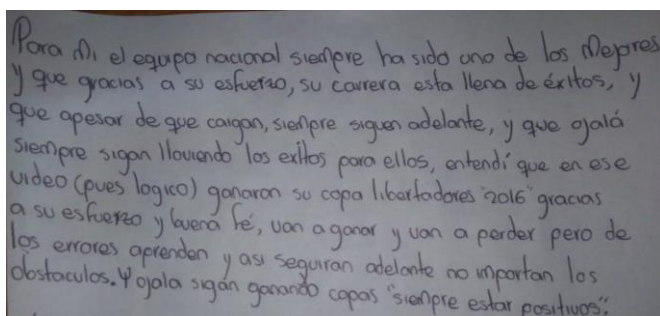 Para Mi el equipo nacional siempre ha sido uno de los Mejores
y que gracias a su esfuerzo, su carrera esta llena de éxitos, y
que apesar de que caigan, siempre siguen adelante, y que ojalá
siempre sigan lloviendo los exitos para ellos, entendí que en ese
video (pues logico) ganaron su copa libertadores "2016" gracias
a su esfuerzo y buena fé, van a ganar y van a perder pero de
los errores aprenden y asi seguiran adelante no importan los
obstaculos. Y ojala sigán ganando copas "siempre estar positivos".